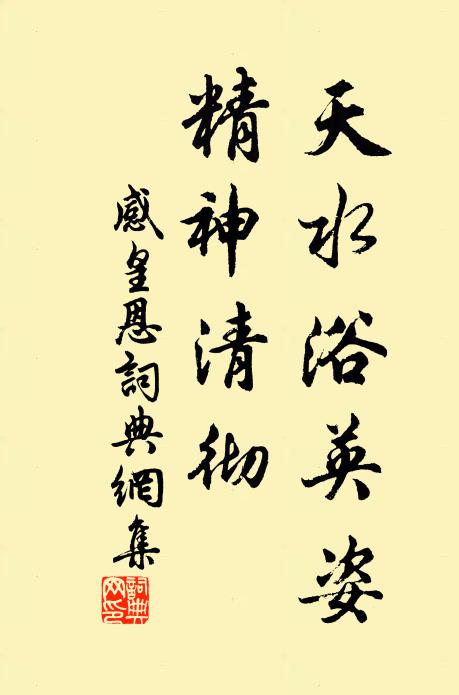 天水浴英姿
精神清彻
感皇恩詞典網集
詞典网印